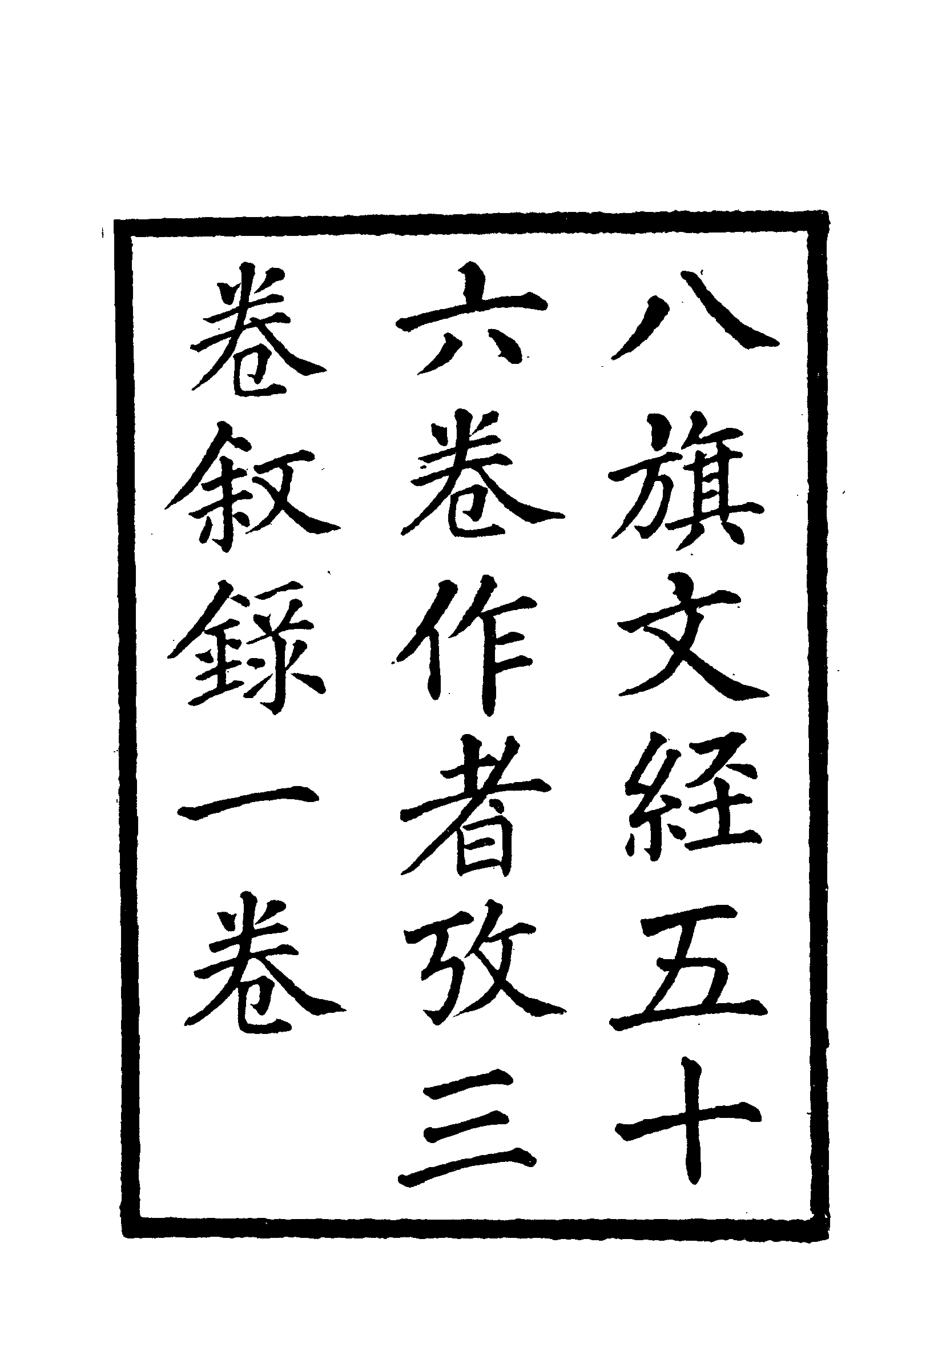 八旗文経五十
六卷作者攷三
卷叙録一卷